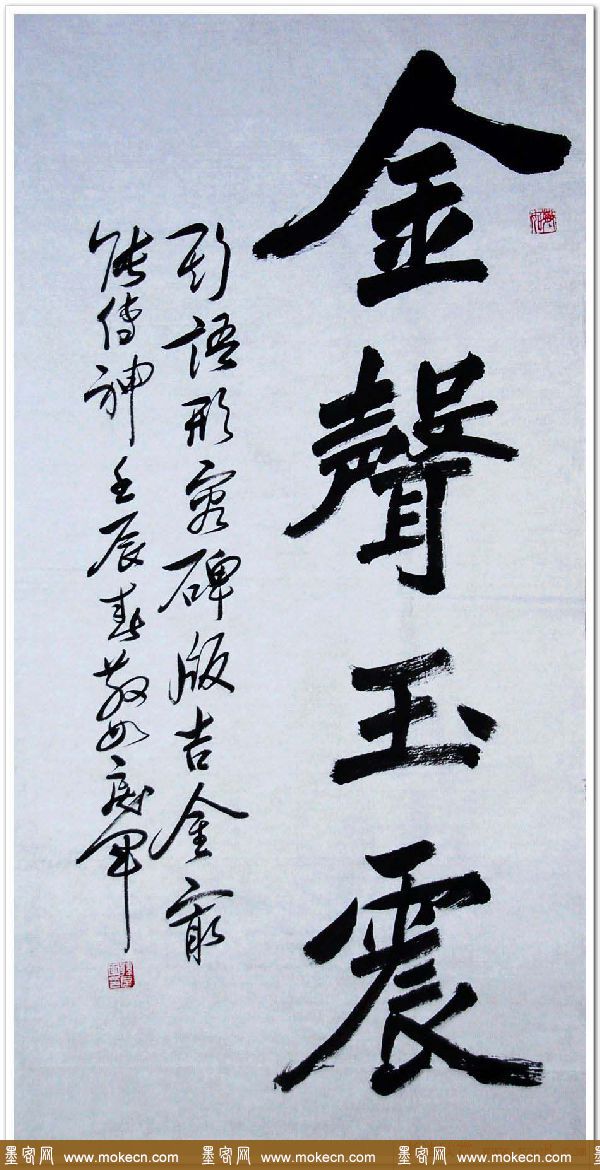 金聲玉震
語形容碑版吉金最
能傳神壬辰春
墨客网 www.mokecn.com 墨客网 www.mokecn.com 墨客网 www.mokecn.com